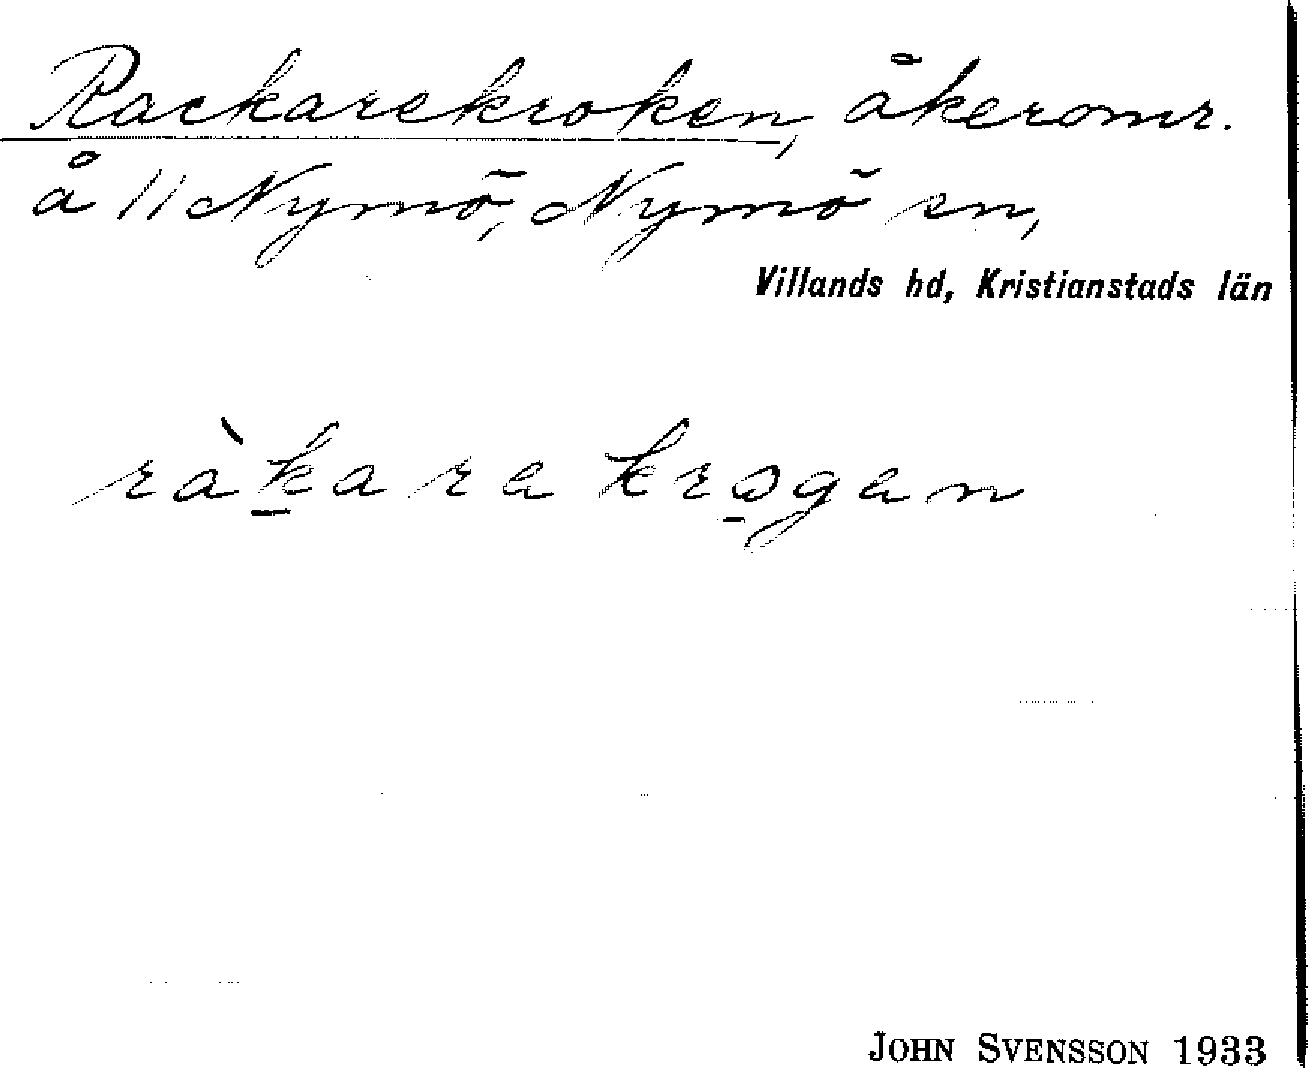 Rackarekroken, åkeromr.
å 11 Nymö, Nymö sn,
Villands hd, Kristianstads län
ràk̠ara kro̠gan
JOHN SVENSSON 1933